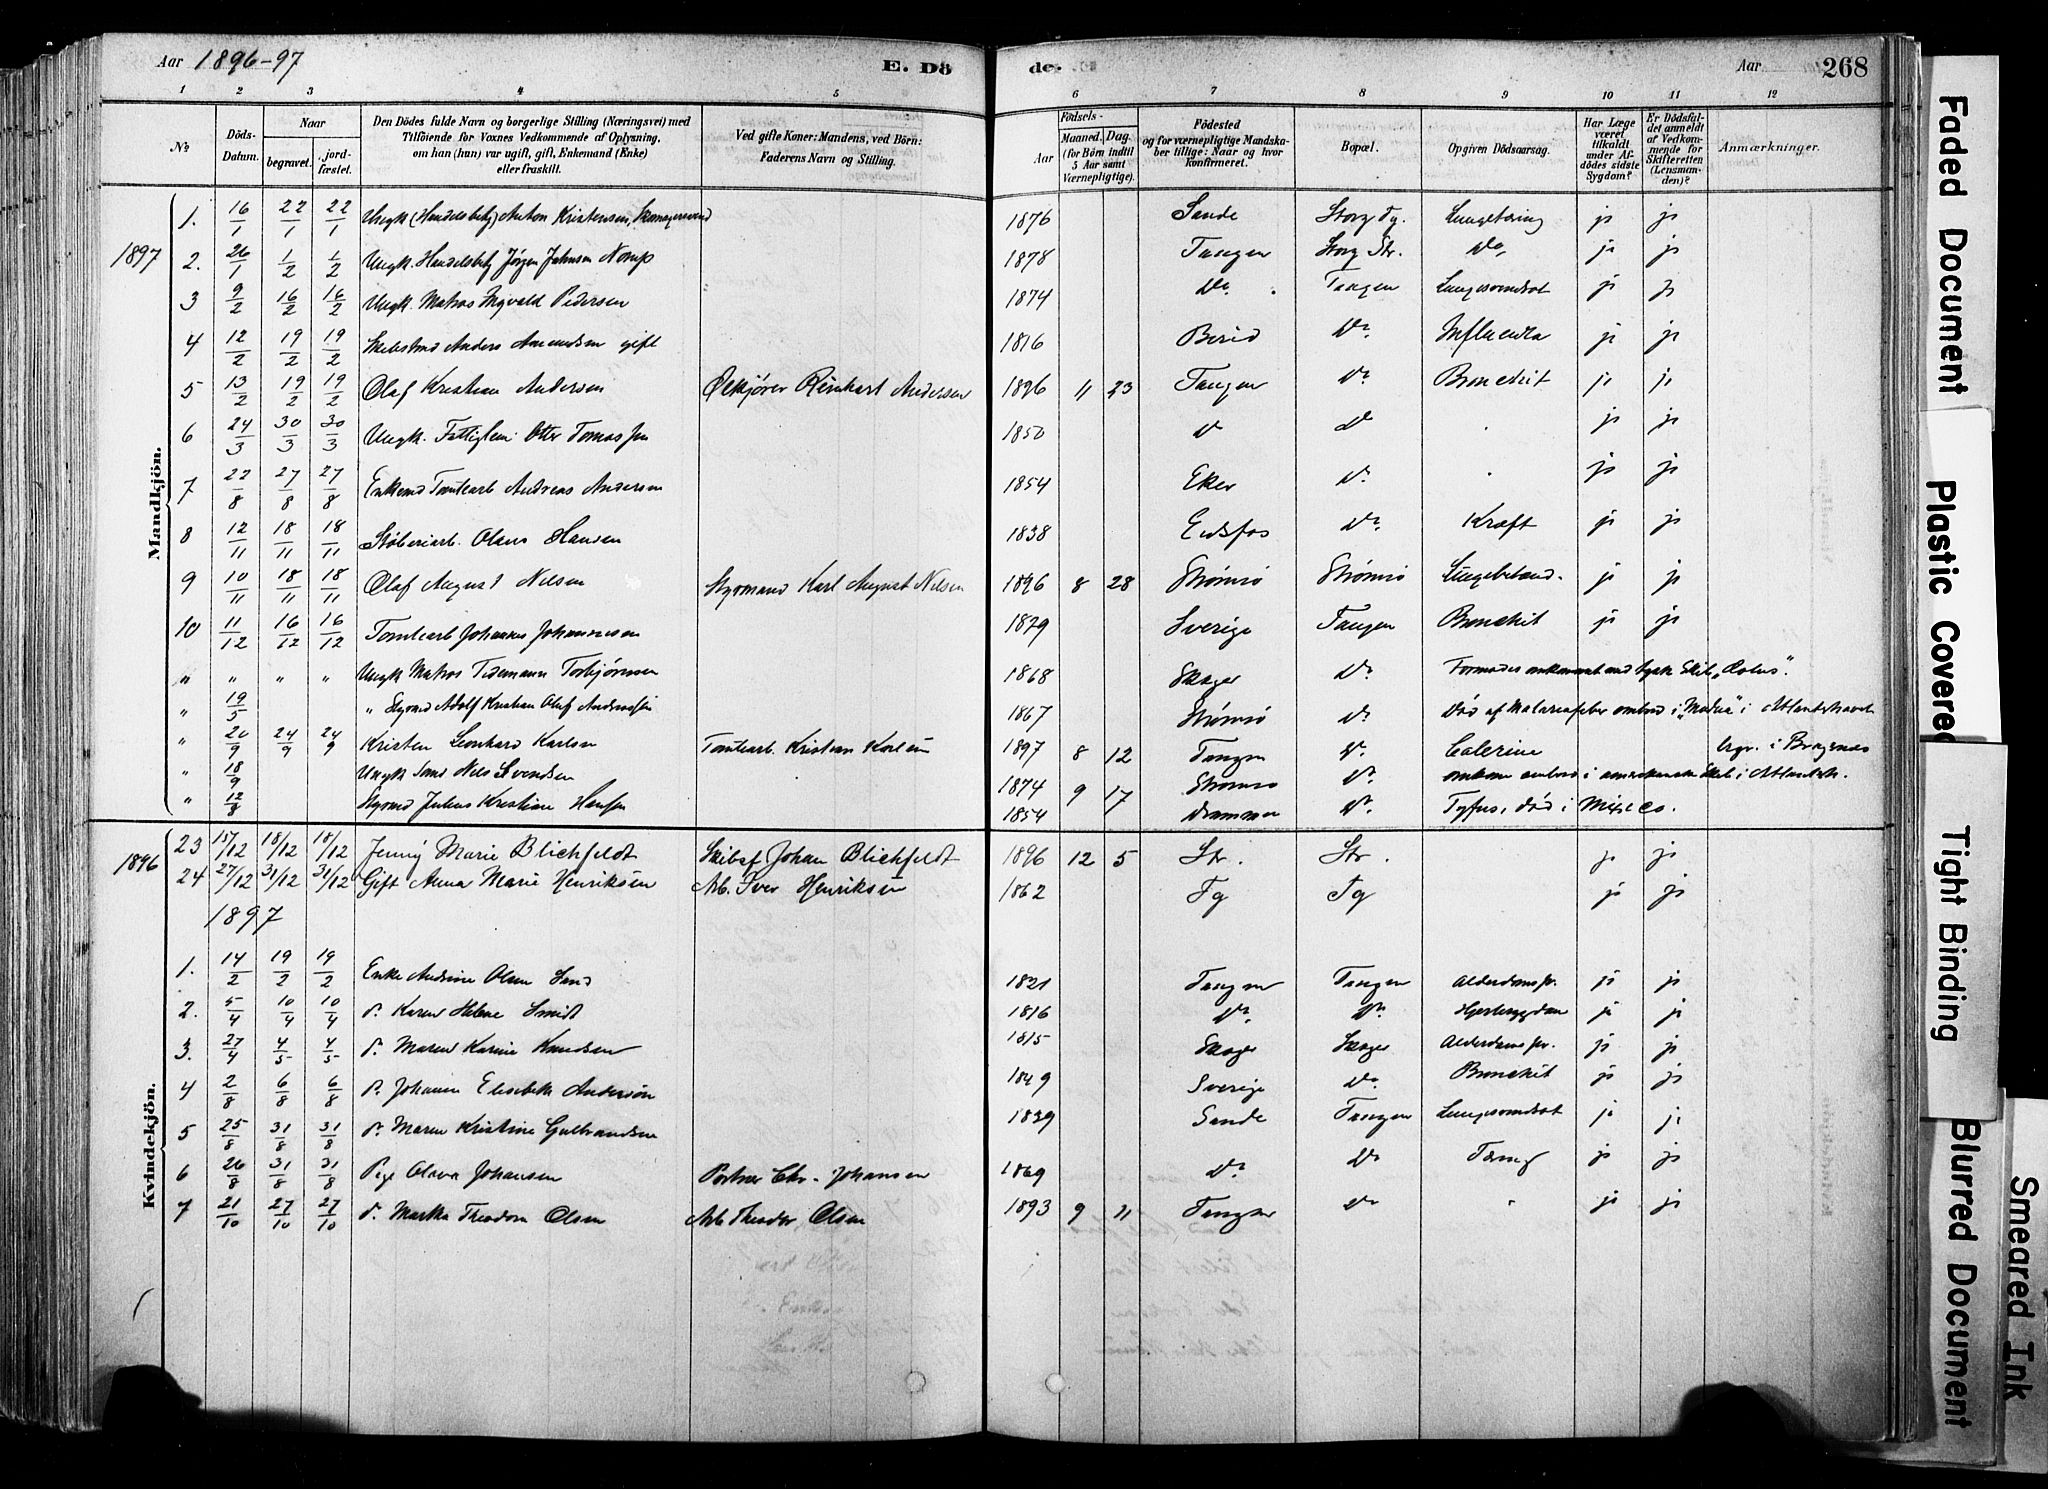 Aar 1896-97 E. Dö de. Aar 268
1 2 3 4 5 6 7 8 9 10 11 12
No Döds-Datum. Naar begravet. jordfæstet. Den Dödes fulde Navn og borgerlige Stilling (Næringsvei) med Tilföiende for Voxnes Vedkommende af Oplysning, om han (hun) var ugift, gift, Enkemand (Enke) eller fraskilt. Ved gifte Koner: Mandens, ved Börn: Faderens Navn og Stilling. Aar Födsels- Maaned. Dag. (for Börn indtil 5 Aar samt Værnepligtige). Födested og for værnepligtige Mandskaber tillige: Naar og hvor konfirmeret. Bopæl. Opgiven Dödsaarsag. Har Læge været tilkaldt under Afdödes sidste Sygdom? Er Dödsfaldet anmeldt af Vedkommende for Skifteretten (Lensmanden)? Anmærkninger.
Mandkjön.
1. 16/1 22/1 22/1 Ungk. (Handelsbetj) Anton Kristensen, 1876 Sande Storg Tg. Lungetæring ja ja
1897 2. 26/1 1/2 1/2 Ungk. Handelsbetj Jørgen Johnsen 1878 Tangen Storg Str. Do ja ja
3 9/2 16/2 16/2 Ungk. Matros Ingvald Pedersen 1874 Do. Tangen Lungesvindsot ja ja
4 12/2 19/2 19/2 Anders Amundsen gift 1816 Berid Do Influenza ja ja
5 13/2 19/2 19/2 Olaf Kristian Andersen Ølkjører Reinhart Andersen 1896 11 23 Tangen Do Bronchit ja ja
6 24/3 30/3 30/3 Ungk. Fattiglem Otter 1850 Do Do ja ja
7 22/8 27/8 27/8 Enkemd Tomtearb Andreas Andersen 1854 Eker Do. ja ja
8 12/11 18/11 18/11 Støberiarb. Olaus Hansen 1838 Eidsfos Do. Kræft ja ja
9 10/11 18/11 18/11 Olaf August Nilsen Styrmand Karl August Nilsen 1896 8 28 Strømsø Strømsø ja ja
10 11/12 16/12 16/12 Tomtearb Johannes Johannesen 1829 Sverige Tangen Bronchit ja ja
" " " " Ungk Matros Tidemann Torbjørnsen 1868 Skoger Do. Formodes omkommet med tysk Skib "
" 19/5 " Styrmd Adolf Kristian Oluf Anderssen 1867 Strømsø Do. Død af Malariafeber ombord i "Medea" i Atlanterhavet
" 20/9 24/9 24/9 Kristen Leonhard Karlsen Tomtearb. Kristian Karlsen 1897 8 12 Tangen Do. Colerine bgr. i Bragenæs
" 18/9 Ungk Nils Svendsen 1874 9 17 Strømsø Do. omkom ombord i amerikansk Skib i Atlanterh.
" 12/8 Styrmd Julius Kristian Hansen 1854 Drammen Do. Tyfus, død i Mexico.
Kvindekjön.
1896 23 15/12 18/12 18/12 Jenny Marie Blichfeldt Skibsf Johan Blichfeldt 1896 12 5 Str. Str. ja ja
24 27/12 31/12 31/12 Gift Anna Marie Henriksen Arb. Iver Henriksen 1862 Tg Tg ja ja
1897
1. 14/2 19/2 19/2 Enke Andrine Olsen 1821 Tangen Tangen Alderdomssv. ja ja
2. 5/4 10/4 10/4 do. Karen Helene Smidt 1816 Do. Do. ja ja
3. 27/4 4/5 4/5 do. Maren Karine Knudsen 1815 Skoger Skoger Alderdomssv. ja ja
4 2/8 6/8 6/8 do. Johanne Elisebeth Andersen 1849 Sverige Do. Bronchit ja ja
5 25/8 31/8 31/8 do. Maren Kristine Gulbrandsen 1839 Sande Tangen Lungesvindsot ja ja
6 26/8 31/8 31/8 Pige Olava Johansen Portner Chr. Johansen 1869 Do. Do Tæring ja ja
7 21/10 27/10 27/10 do. Martha Theodora Olsen Arb Theodor Olsen 1893 9 11 Tangen Do " ja ja
Faded Document
Plastic Covered
Tight Binding
Blurred Document
Smeared Ink